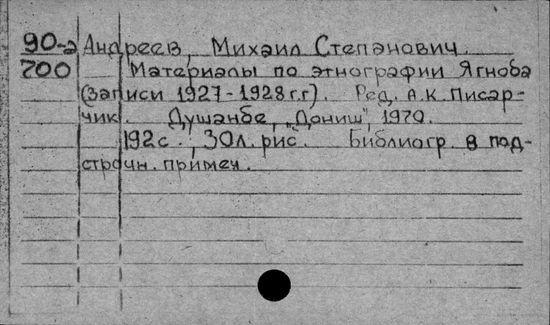 90-2 Андреев, Михаил Степанович.
700 Материалы по этнографии Ягноба
(записи 1927-1928 г.г). Ред. А.К. Писар-
чик. Душанбе, „Дониш", 1970.
192 с., 30 л. рис. Библиогр. в под-
строчн. примеч.